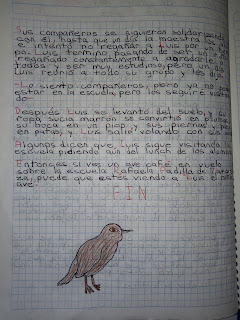 Sus compañeros se siguieron solidarizando
con él, hasta que un día la maestra se
e intentó no regañar a Luis por su
pa. Luis terminó pasando de ser un
regañado constantemente a agradar a
todos y ser muy estudioso, pero un día
Luis reunió a todo su grupo y les dijo:
-Lo siento compañeros, pero ya no
estar en la escuela pero los seguiré visitan
do-
Después Luis se levantó del suelo, y su
ropa sucia marrón se convirtió en plumas,
su boca en un pico, y sus piernas y pies
en patas, y Luis salió volando con sus
Algunos dicen que Luis sigue visitando
escuela pidiendo aún del lunch de los alumnos
Entonces si ves un ave café en vuelo
sobre la escuela Rafaela Padilla de
za, puede que estés viendo a Luis el niño
ave.
FIN